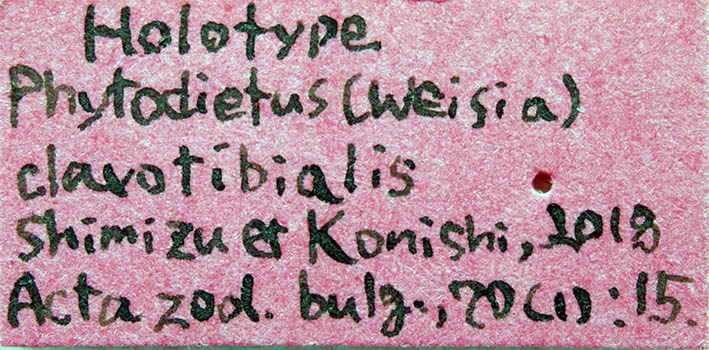 Holotype
Phytodietus (Weisia)
clavotibialis
Shimizu et Konishi, 2018
Acta zool. bulg., 70 (1): 15.